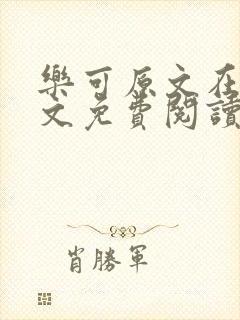 樂可原文在
文免費閱讀
肖勝軍